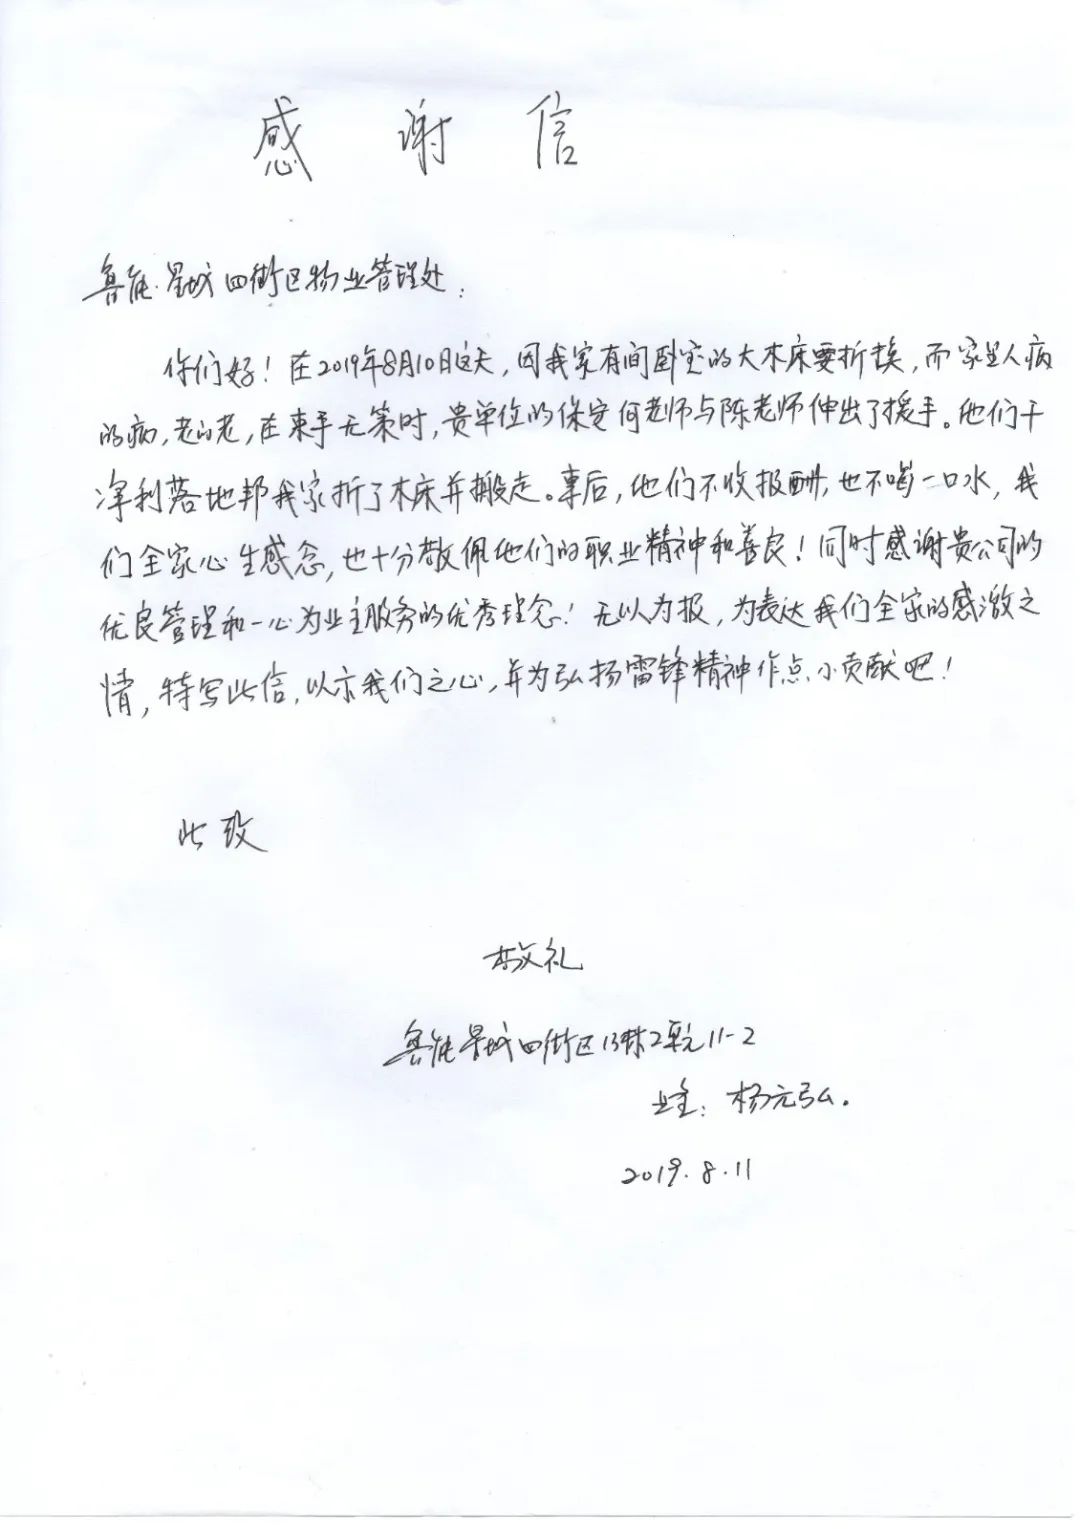 感谢信
鲁能·星城四街区物业管理处:
你们好!在2019年8月10日这天,因我家有间卧室的大木床要折换,而家里人病
的病,老的老,在束手无策时,贵单位的保安何老师与陈老师伸出了援手。他们干
净利落地邦我家折了木床并搬走。事后,他们不收报酬,也不喝一口水,我
们全家心生感念,也十分敬佩他们的职业精神和善良!同时感谢贵公司的
优良管理和一心为业主服务的优秀理念!无以为报,为表达我们全家的感激之
情,特写此信,以示我们之心,并为弘扬雷锋精神作点小贡献吧!
此致
敬礼
鲁能星城四街区13栋2单元11-2
业主:杨元弘.
2019.8.11